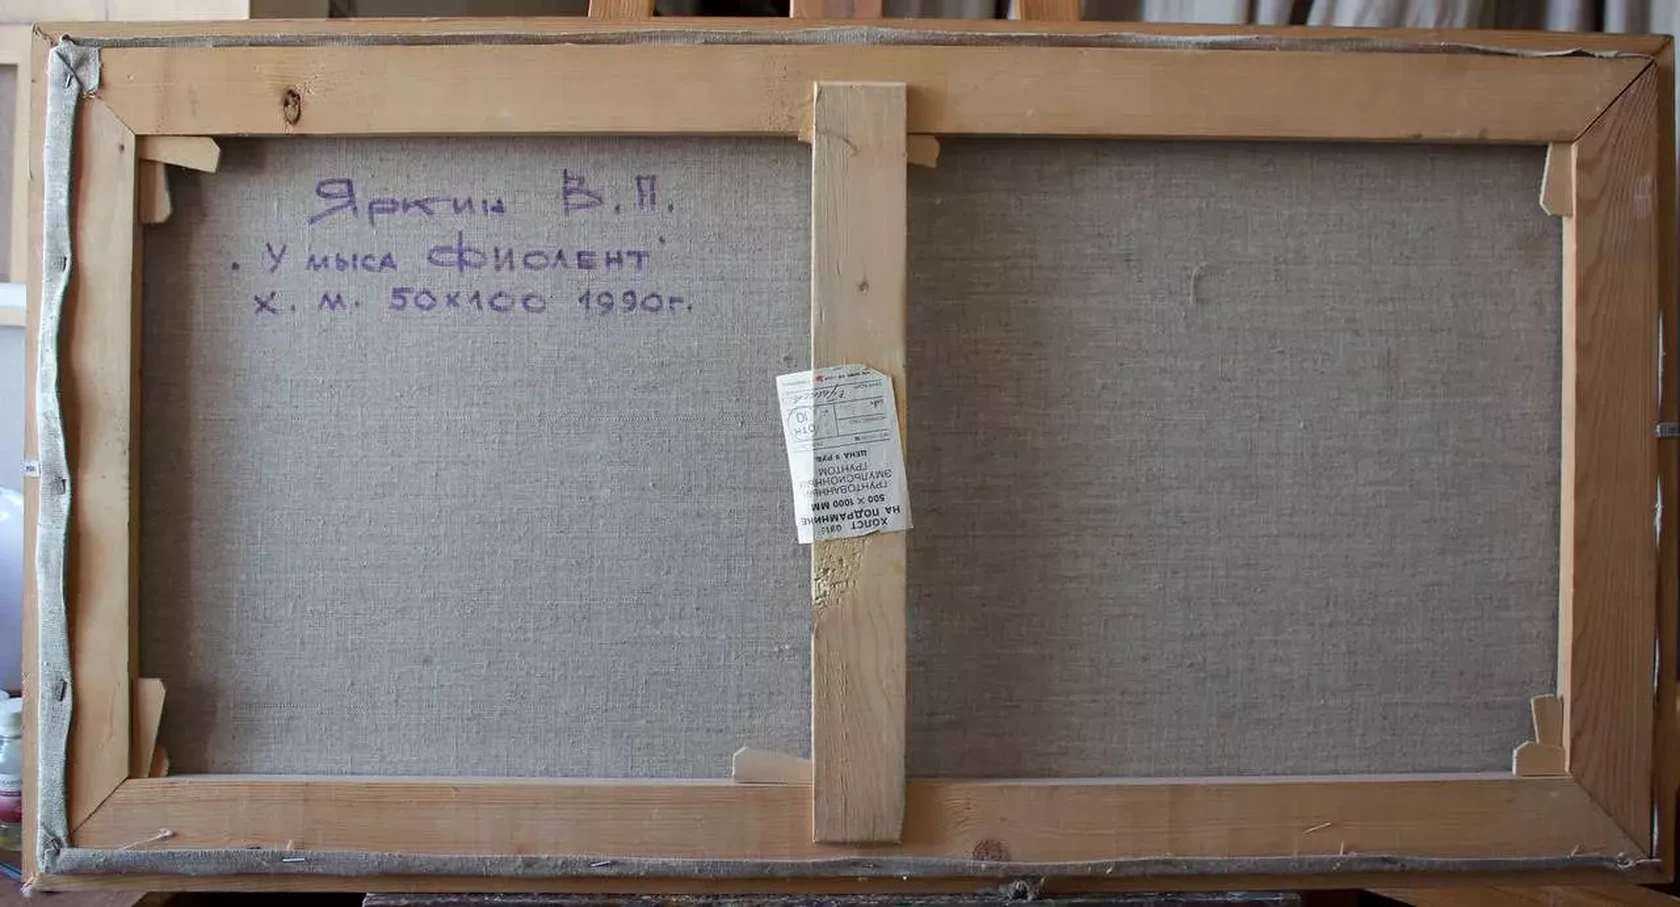 Яркин В.П.
"У мыса Фиолент"
х. м. 50х100 1990г.
ХОЛСТ
НА ПОДРАМНИКЕ
500 X 1000 ММ
ГРУНТОВАННЫЙ
ЭМУЛЬСИОННЫМ
ГРУНТОМ
ЦЕНА 9 РУБ.
ОТК
10